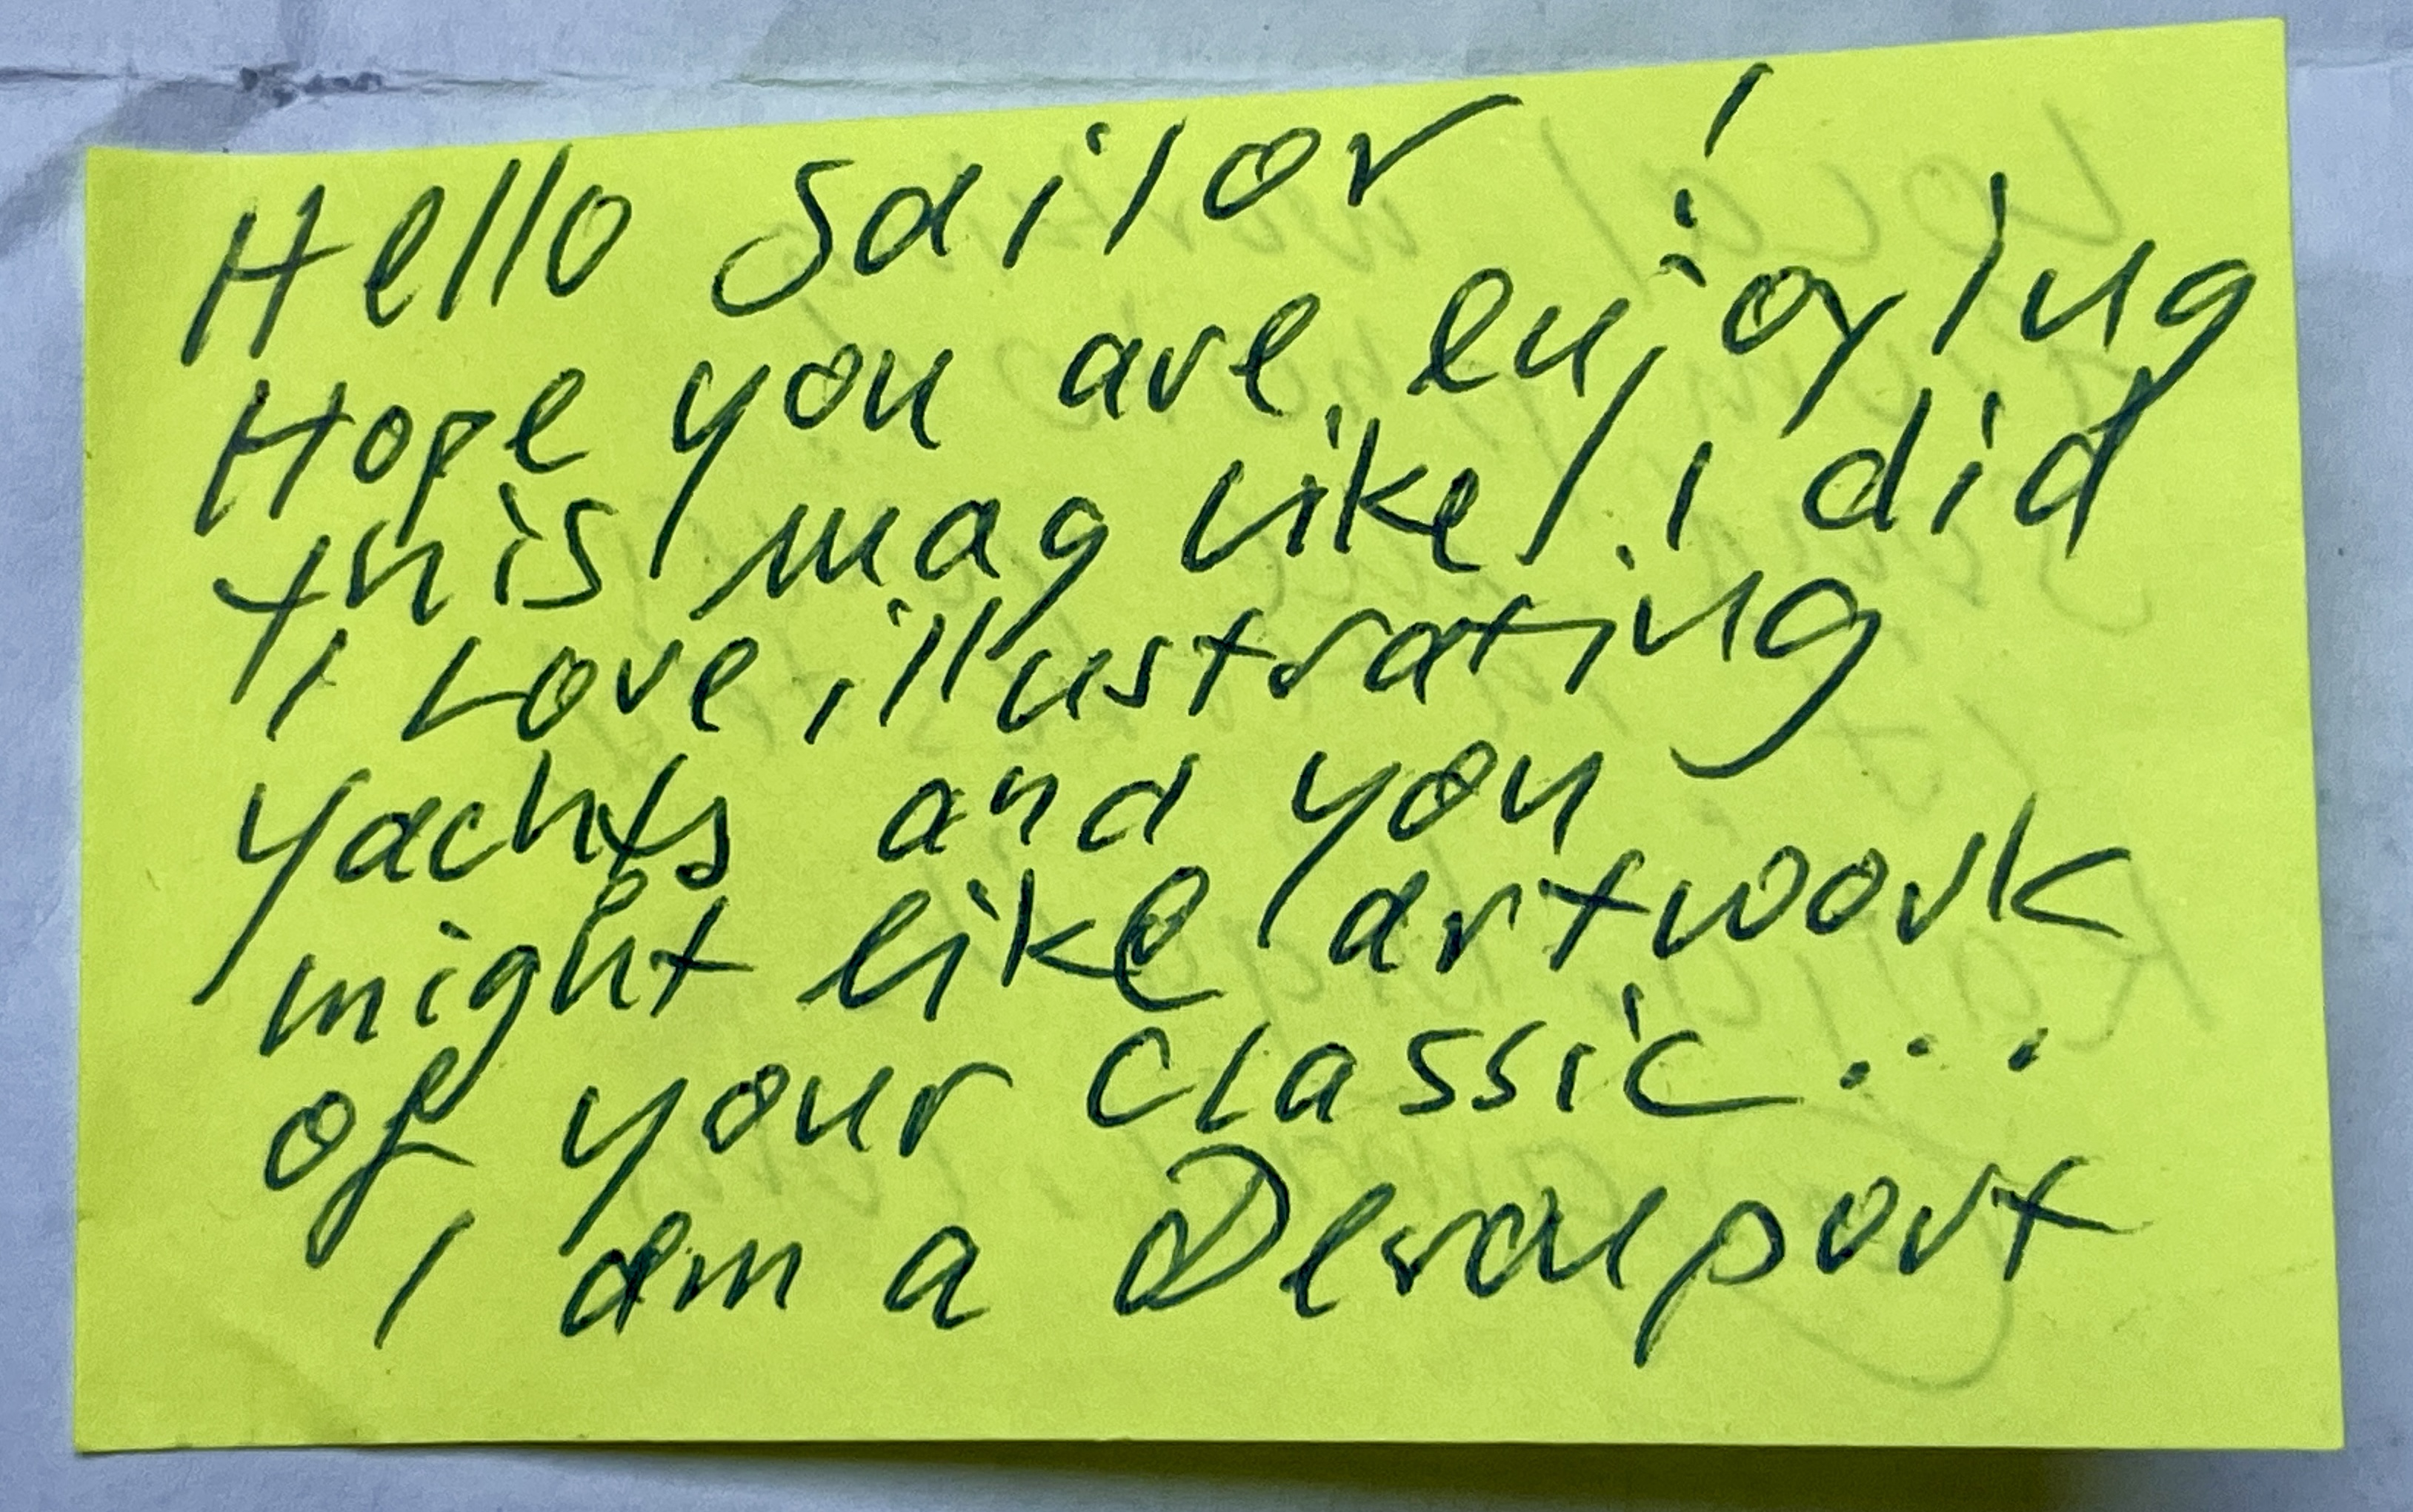 Hello Sailor !
Hope you are enjoying
this mag like i did
i Love illustrating
yachts and you
might like artwork
of your classic...
I am a Devonport